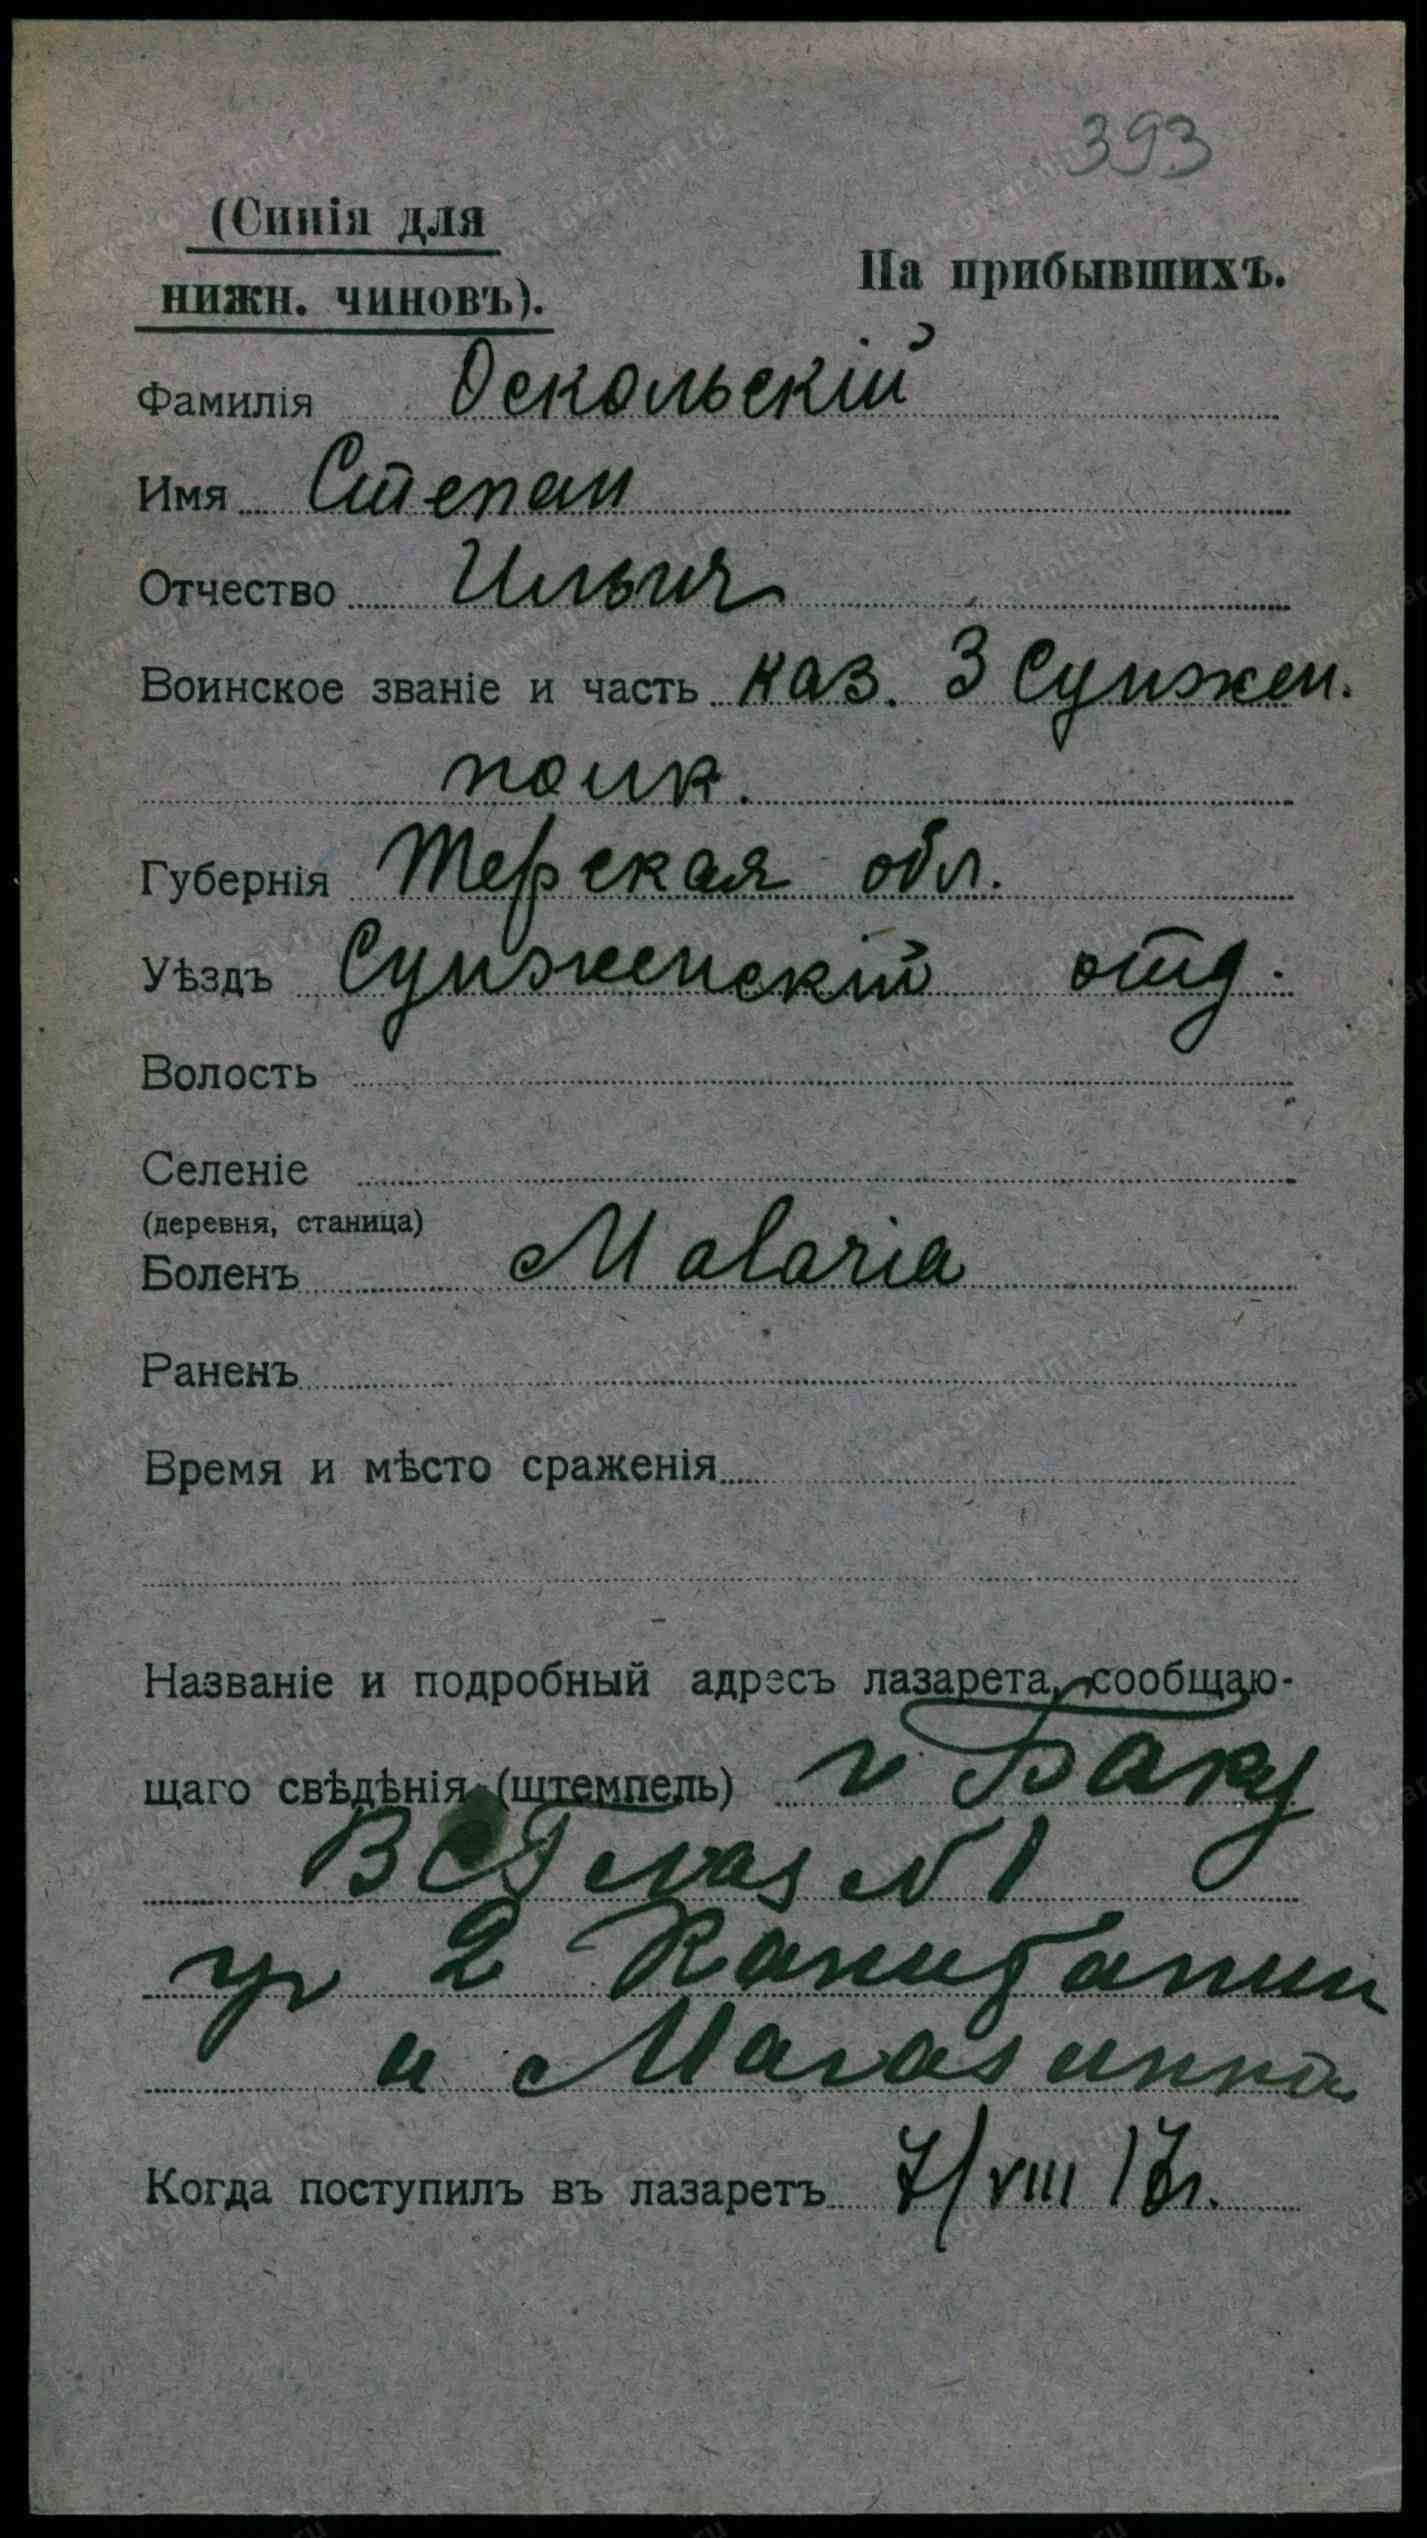 393
(Синія для
нижн. чиновъ).
На прибывшихъ.
Фамилія Оскольскій
Имя Степан
Отчество Ильич
Воинское званіе и часть каз. 3 Сунжен.
полк.
Губернія Терская обл.
Уѣздъ Сунженскій отд.
Волость
Селеніе
(деревня, станица)
Боленъ Malaria
Раненъ
Время и мѣсто сраженія
Названіе и подробный адресъ лазарета, сообщаю-
щаго свѣдѣнія (штемпель) г Баку
ВСГ лаз N 1
уг 2 Канитапин
и Магазинной
Когда поступилъ въ лазаретъ 7/VIII 17г.